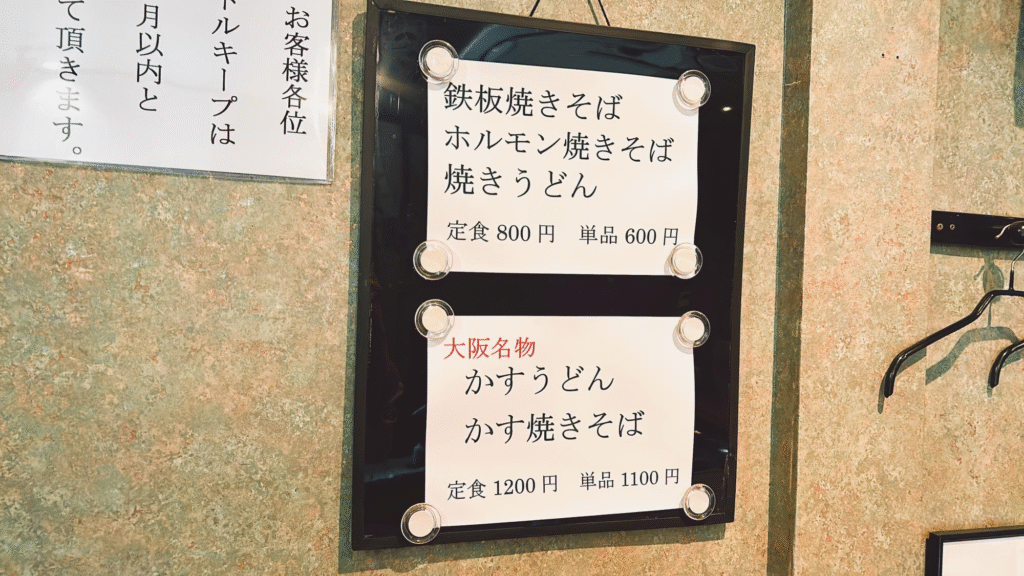 お客様各位
トルキープは
月以内と
て頂きます。
鉄板焼きそば
ホルモン焼きそば
焼きうどん
定食 800 円 単品 600 円
大阪名物
かすうどん
かす焼きそば
定食 1200 円 単品 1100 円